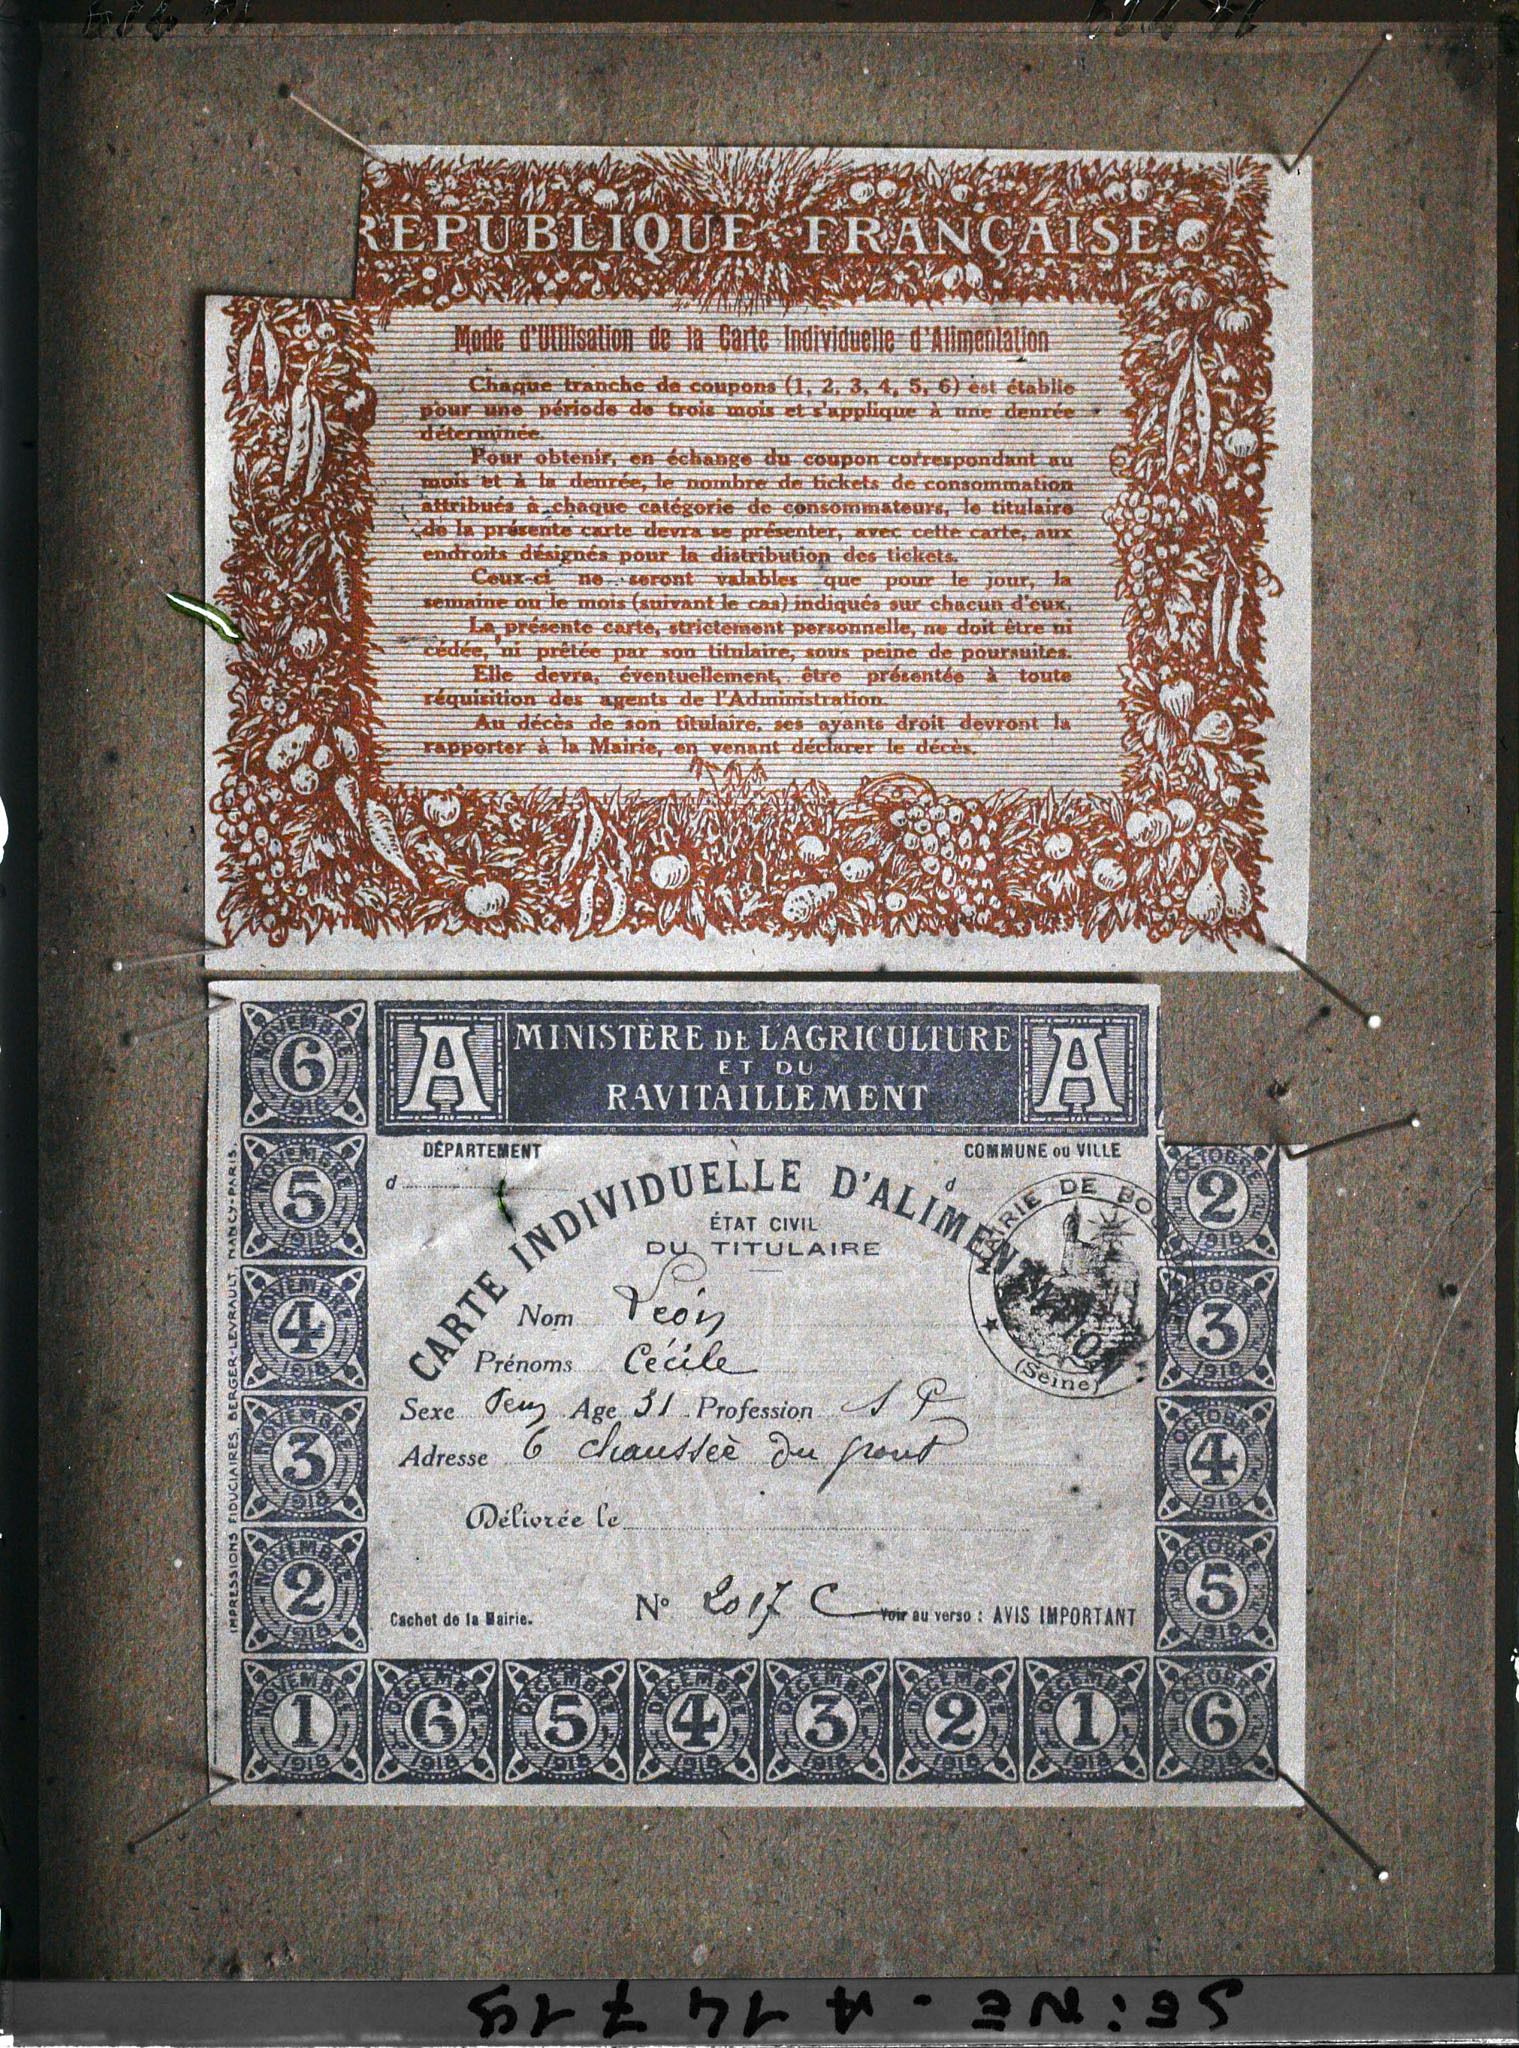 REPUBLIQUE FRANÇAISE
Mode d'Utilisation de la Carte Individuelle d'Alimentation
Chaque tranche de coupons (1, 2, 3, 4, 5, 6) est établie
pour une période de trois mois et s'applique à une denrée
déterminée.
Pour obtenir, en échange du coupon correspondant au
mois et à la denrée, le nombre de tickets de consommation
attribués à chaque catégorie de consommateurs, le titulaire
de la présente carte devra se présenter, avec cette carte, aux
endroits désignés pour la distribution des tickets.
Ceux-ci ne seront valables que pour le jour, la
semaine ou le mois (suivant le cas) indiqués sur chacun d'eux.
La présente carte, strictement personnelle, ne doit être ni
cédée, ni prêtée par son titulaire, sous peine de poursuites.
Elle devra, éventuellement, être présentée à toute
réquisition des agents de l'Administration.
Au décès de son titulaire, ses ayants droit devront la
rapporter à la Mairie, en venant déclarer le décès.
A MINISTÈRE DE L'AGRICULTURE A
ET DU
RAVITAILLEMENT
DÉPARTEMENT
COMMUNE OU VILLE
d
d
CARTE INDIVIDUELLE D'ALIMEN
ÉTAT CIVIL
DU TITULAIRE
MAIRIE DE BOUL
(Seine)
Nom Léon
Prénoms Cécile
Sexe Fem Age 31 Profession S P
Adresse 6 chaussée du pont
Délivrée le
Cachet de la Mairie.
N° 2017 C
Voir au verso : AVIS IMPORTANT
IMPRESSIONS FIDUCIAIRES, BERGER-LEVRAULT, NANCY-PARIS.
NOVEMBRE 6 1918
NOVEMBRE 5 1918
NOVEMBRE 4 1918
NOVEMBRE 3 1918
NOVEMBRE 2 1918
NOVEMBRE 1 1918
DÉCEMBRE 6 1918
DÉCEMBRE 5 1918
DÉCEMBRE 4 1918
DÉCEMBRE 3 1918
DÉCEMBRE 2 1918
DÉCEMBRE 1 1918
OCTOBRE 2 1918
OCTOBRE 3 1918
OCTOBRE 4 1918
OCTOBRE 5 1918
OCTOBRE 6 1918
SEINE - A 14 719